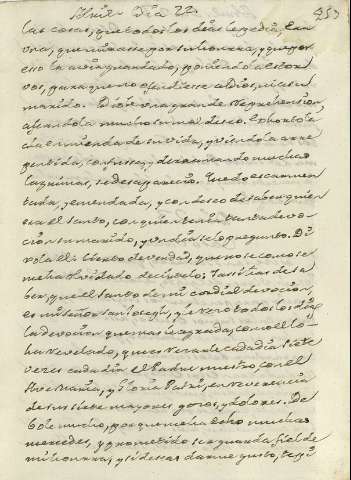 Abril Dia 22. 253
las cosas, que todos los dias le pedia. Era
una, que mirasse por su honrra, y que por
esso la avia guardado, poniendo estor-
vos, para que no ofendiesse a Dios, ni a su
marido. Diole una grande reprehension,
afeandola mucho su mal deseo. Exhortola
a la enmienda de su vida, y viendola arre
pentida, confusa, y derramando muchas
lagrimas, se desaparecio. Quedó escarmen
tada, y enmendada, y con deseo de saber quien
era el Santo, con quien tenia tanta devo-
cion su marido, y un dia se lo pregunto. Di
xola el: siento de verdad, que no se como se
me ha olvidado decirtelo; has de sa
ber, que el Santo de mi cordial devocion,
es mi Señor San Joseph, y le rezo todos los dias
la devocion que mas le agrada, como el lo
ha revelado, que es rezarle cada dia siete
veces cada dia el Padre nuestro con el
Ave Maria, y Gloria Patri, en reverencia
de sus siete mayores gozos, y dolores. De
bole mucho, porque me ha hecho muchas
mercedes, y prometido ser guarda fiel de
mi honrra, y si deseas darme gusto, te pi